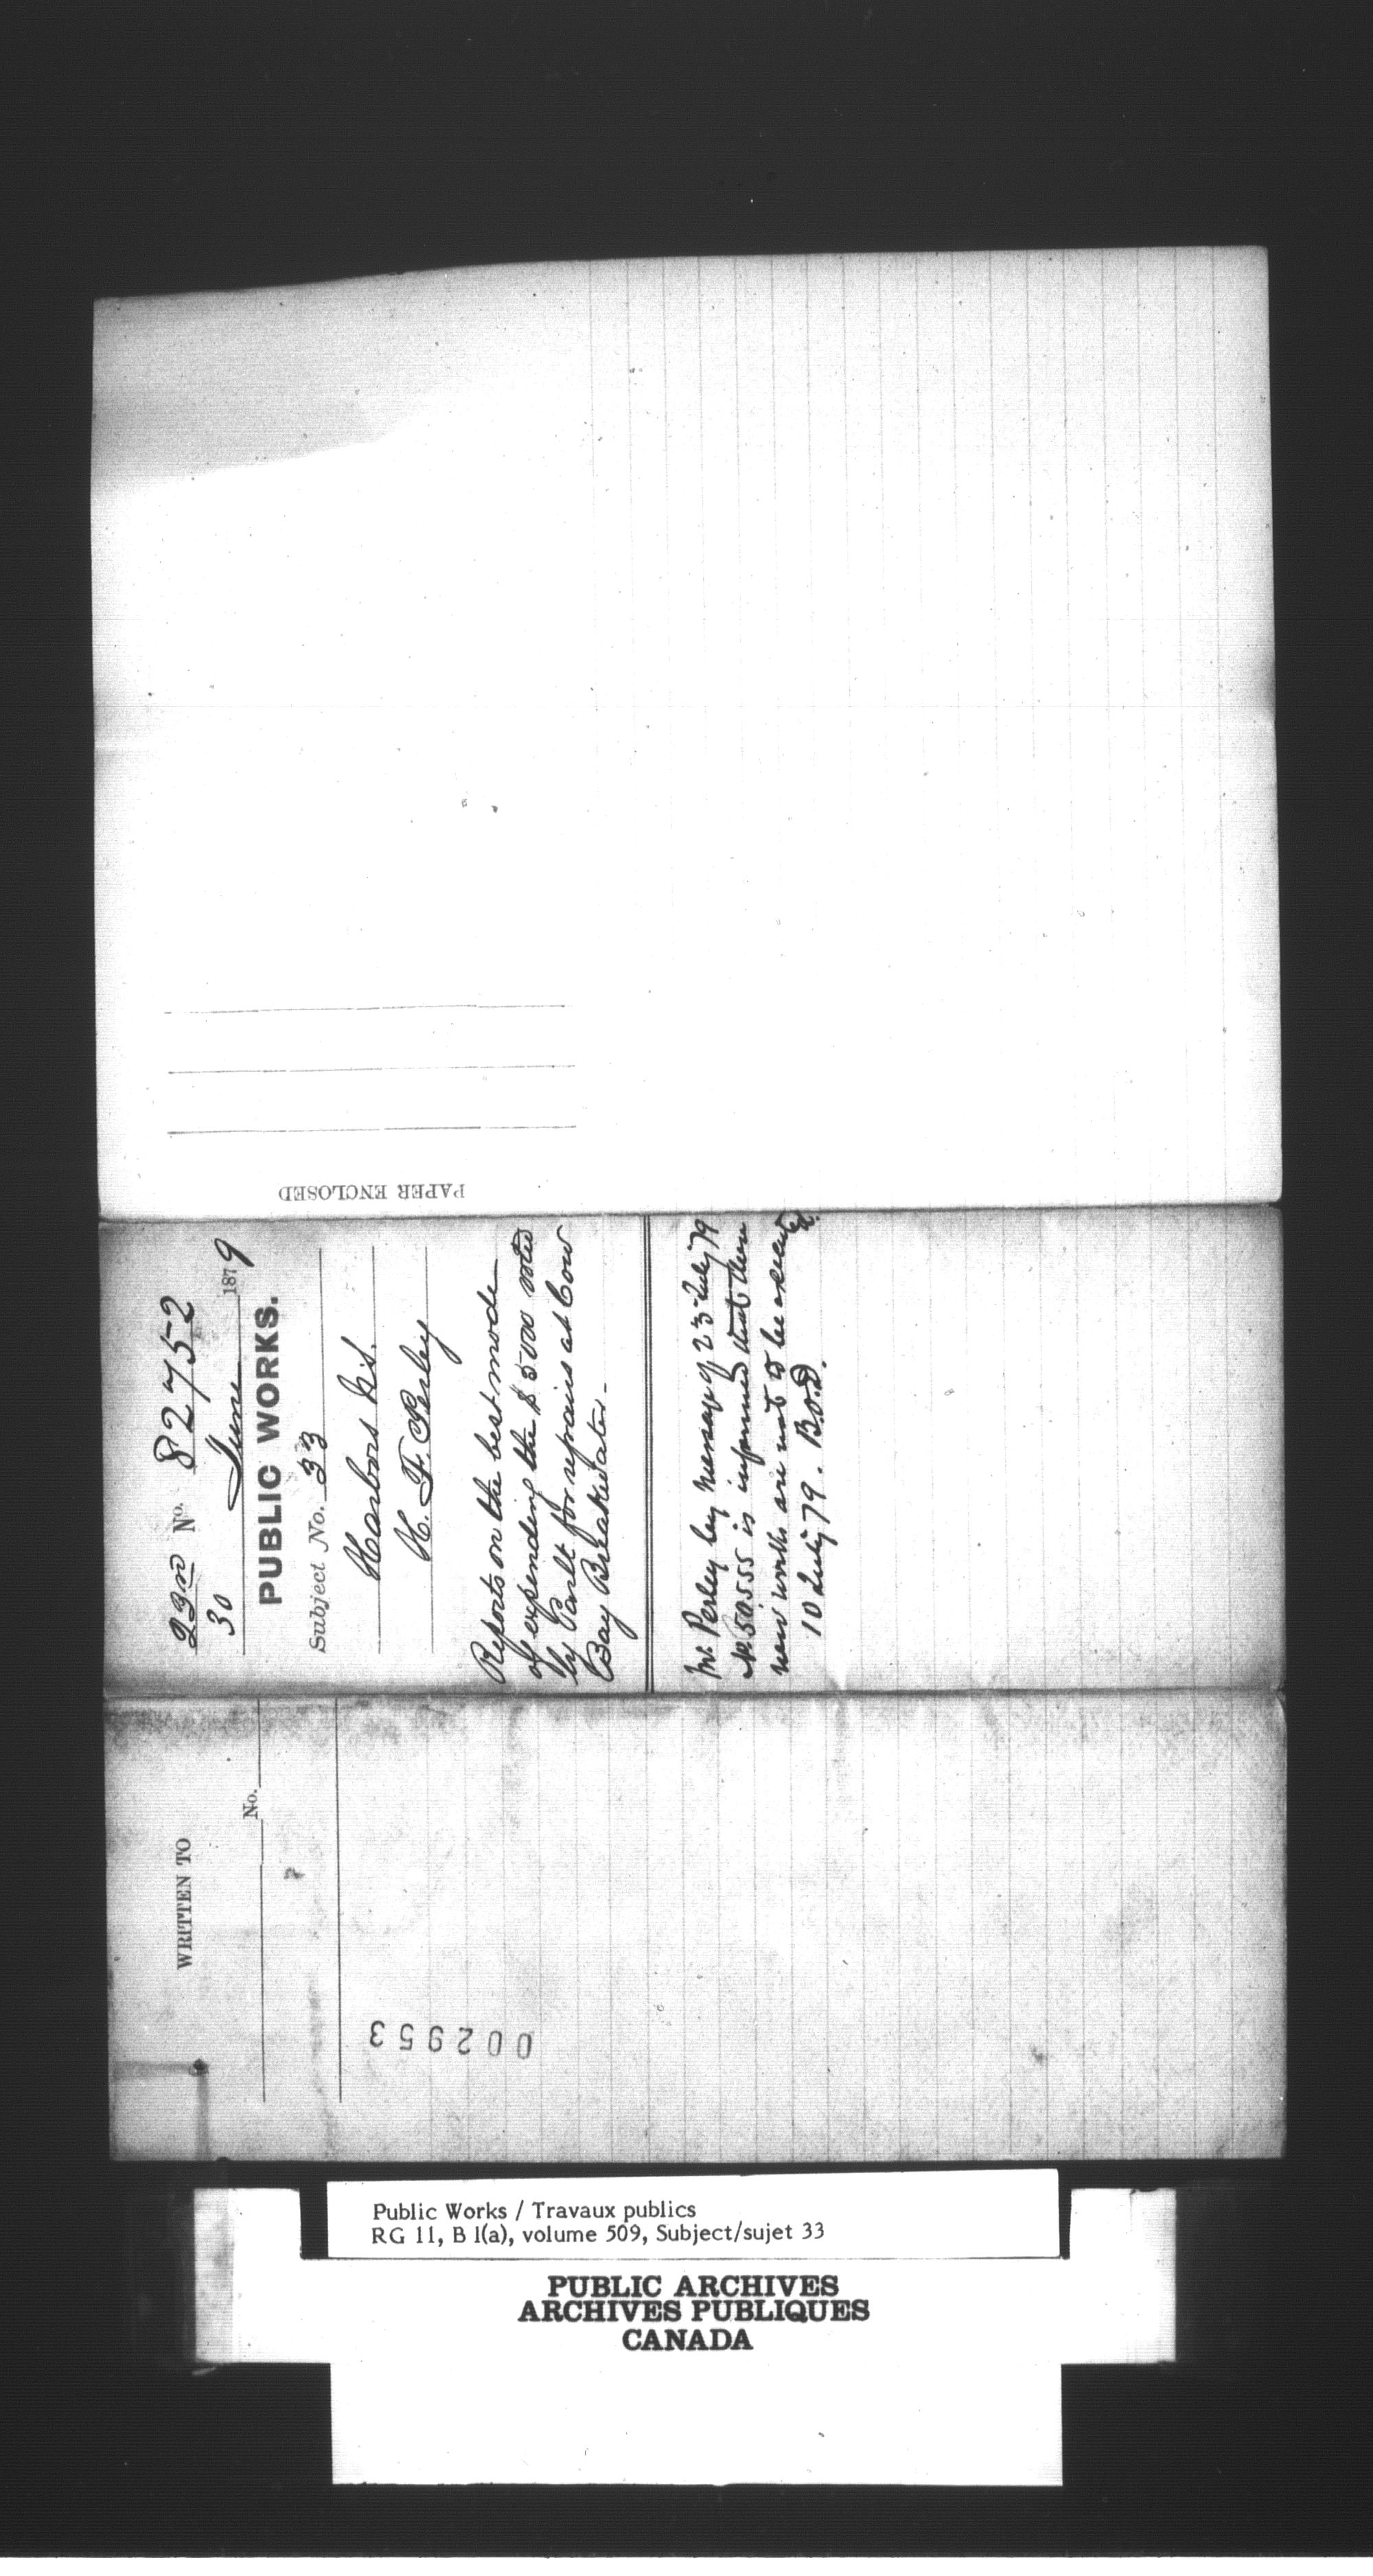 PAPER ENCLOSED
23rd No. 82752
30 June 1879
PUBLIC WORKS.
Subject No. 33
Harbors N.S.
H. F. Perley
Reports on the best mode
of expending the $5000 voted
by Parlt for repairs at Cow
Bay Breakwater
Mr. Perley by message of 23 July 79
No. 50555 is informed that these
new works are not to be executed.
10 July 79. B.O.D.
WRITTEN TO
No.
002953
Public Works / Travaux publics
RG 11, B 1(a), volume 509, Subject/sujet 33
PUBLIC ARCHIVES
ARCHIVES PUBLIQUES
CANADA